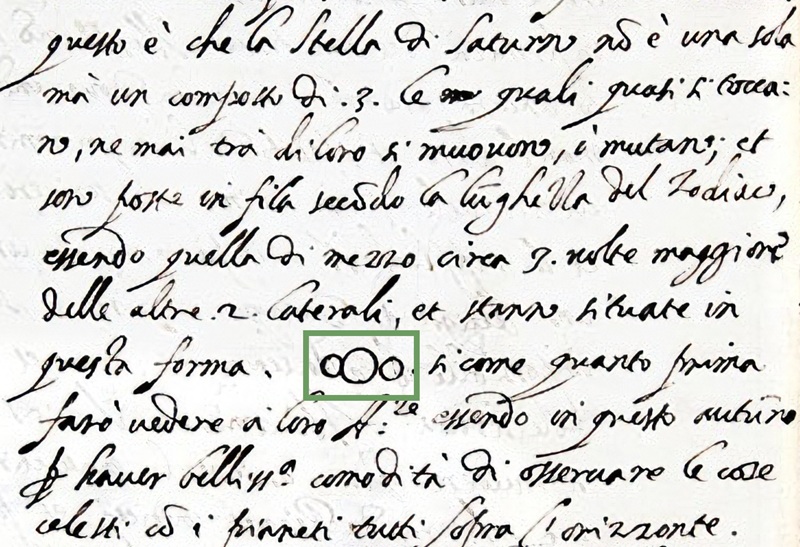 questo è che la Stella di Saturno nõ è una sola
mà un composto di .3. le quali quasi si tocca:
no, ne mai trà di loro si muovono, ò mutano; et
son poste in fila secõdo la lũghezza del Zodiaco,
essendo quella di mezzo circa 3. volte maggiore
delle altre .2. laterali, et stanno situate in
questa forma. si come quanto prima
farò vedere a loro AA.ze essendo in questo autũno
ꝑ haver belliss.a comodità di osservare le cose
celesti cõ i pianeti tutti sopra l'orizzonte.